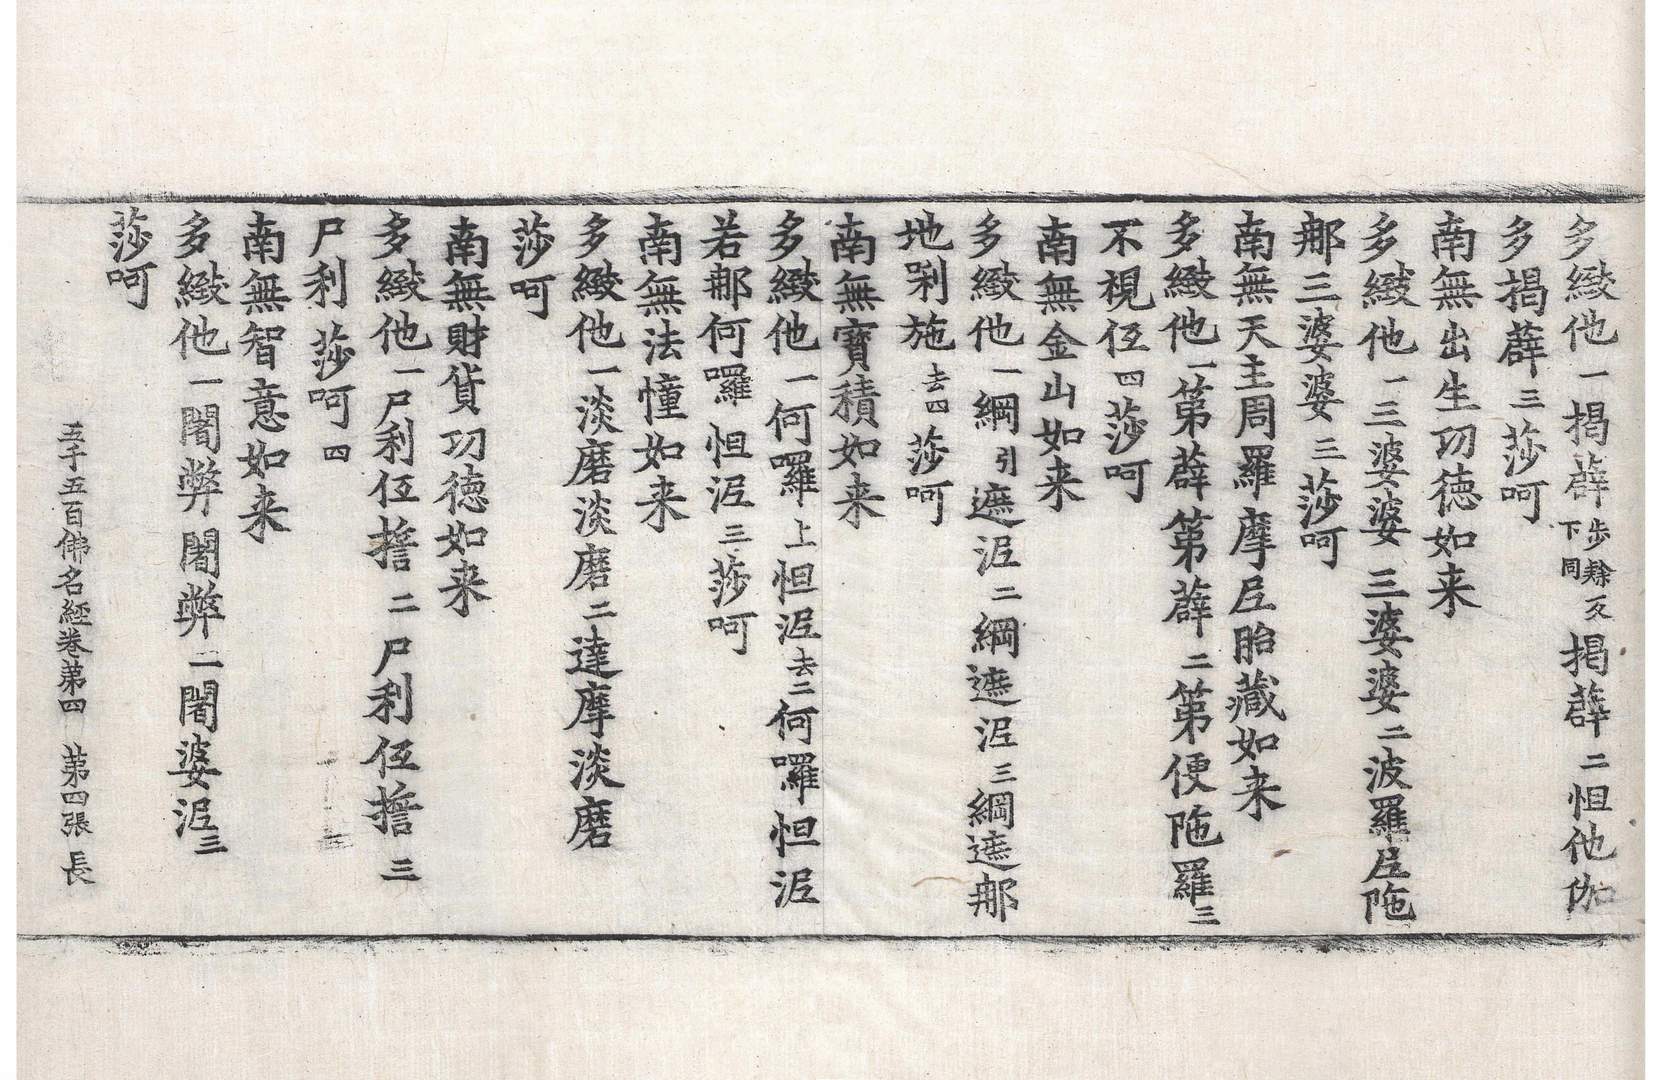 多緻他一揭薜步睩反下同揭薜二怛他伽
多揭薜三莎呵
南無出生功德如来
多緻他一三婆婆三婆婆二波羅𡰱陁
那三婆婆三莎呵
南無天主周羅摩𡰱胎藏如来
多緻他一第薜第薜二第便陁羅三
不視侸四莎呵
南無金山如来
多緻他一綱引遮泥二綱遮泥三綱遮那
地唎施去四莎呵
南無寶積如来
多緻他一何囉上怛泥去二何囉怛泥
若那何囉怛泥三莎呵
南無法幢如来
多緻他一淡磨淡磨二達摩淡磨
莎呵
南無財貨功德如来
多緻他一尸利侸擔二尸利侸擔三
尸利莎呵四
南無智意如来
多緻他一闍弊闍弊二闍婆泥三
莎呵
五千五百佛名經卷第四 第四張 長